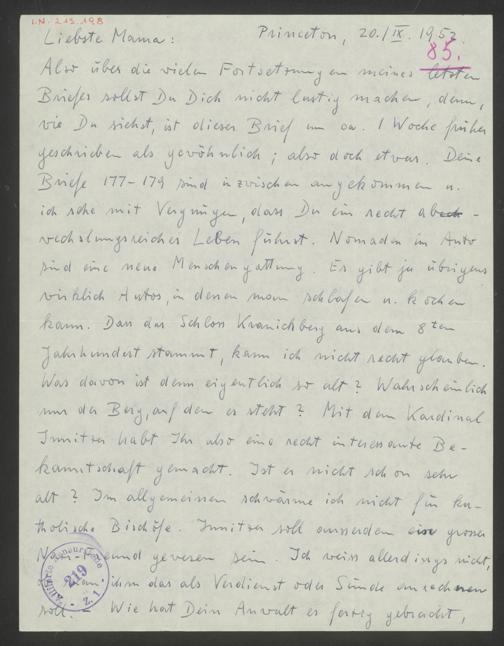 I.N. 213.198
Liebste Mama: Princeton, 20./IX. 1952
85.
Also über die vielen Fortsetzungen meines letzten
Briefes sollst Du Dich nicht lustig machen, denn,
wie Du siehst, ist dieser Brief um ca. 1 Woche früher
geschrieben als gewöhnlich; also doch etwas. Deine
Briefe 177-179 sind inzwischen angekommen u.
ich sehe mit Vergnügen, dass Du ein recht ab-
wechslungsreiches Leben führst. Nomaden im Auto
sind eine neue Menschengattung. Es gibt ja übrigens
wirklich Autos, in denen man schlafen u. kochen
kann. Dass das Schloss Kranichberg aus dem 8ten
Jahrhundert stammt, kann ich nicht recht glauben.
Was davon ist denn eigentlich so alt? Wahrscheinlich
nur der Berg, auf dem es steht? Mit dem Kardinal
Innitzer habt Ihr also eine recht interessante Be-
kanntschaft gemacht. Ist er nicht schon sehr
alt? Im allgemeinen schwärme ich nicht für ka-
tholische Bischöfe. Innitzer soll ausserdem ein grosser
gewesen sein. Ich weiss allerdings nicht,
man ihm das als Verdienst oder Sünde anrechnen
soll. Wie hat Dein Anwalt es fertig gebracht,
219
Z. 1